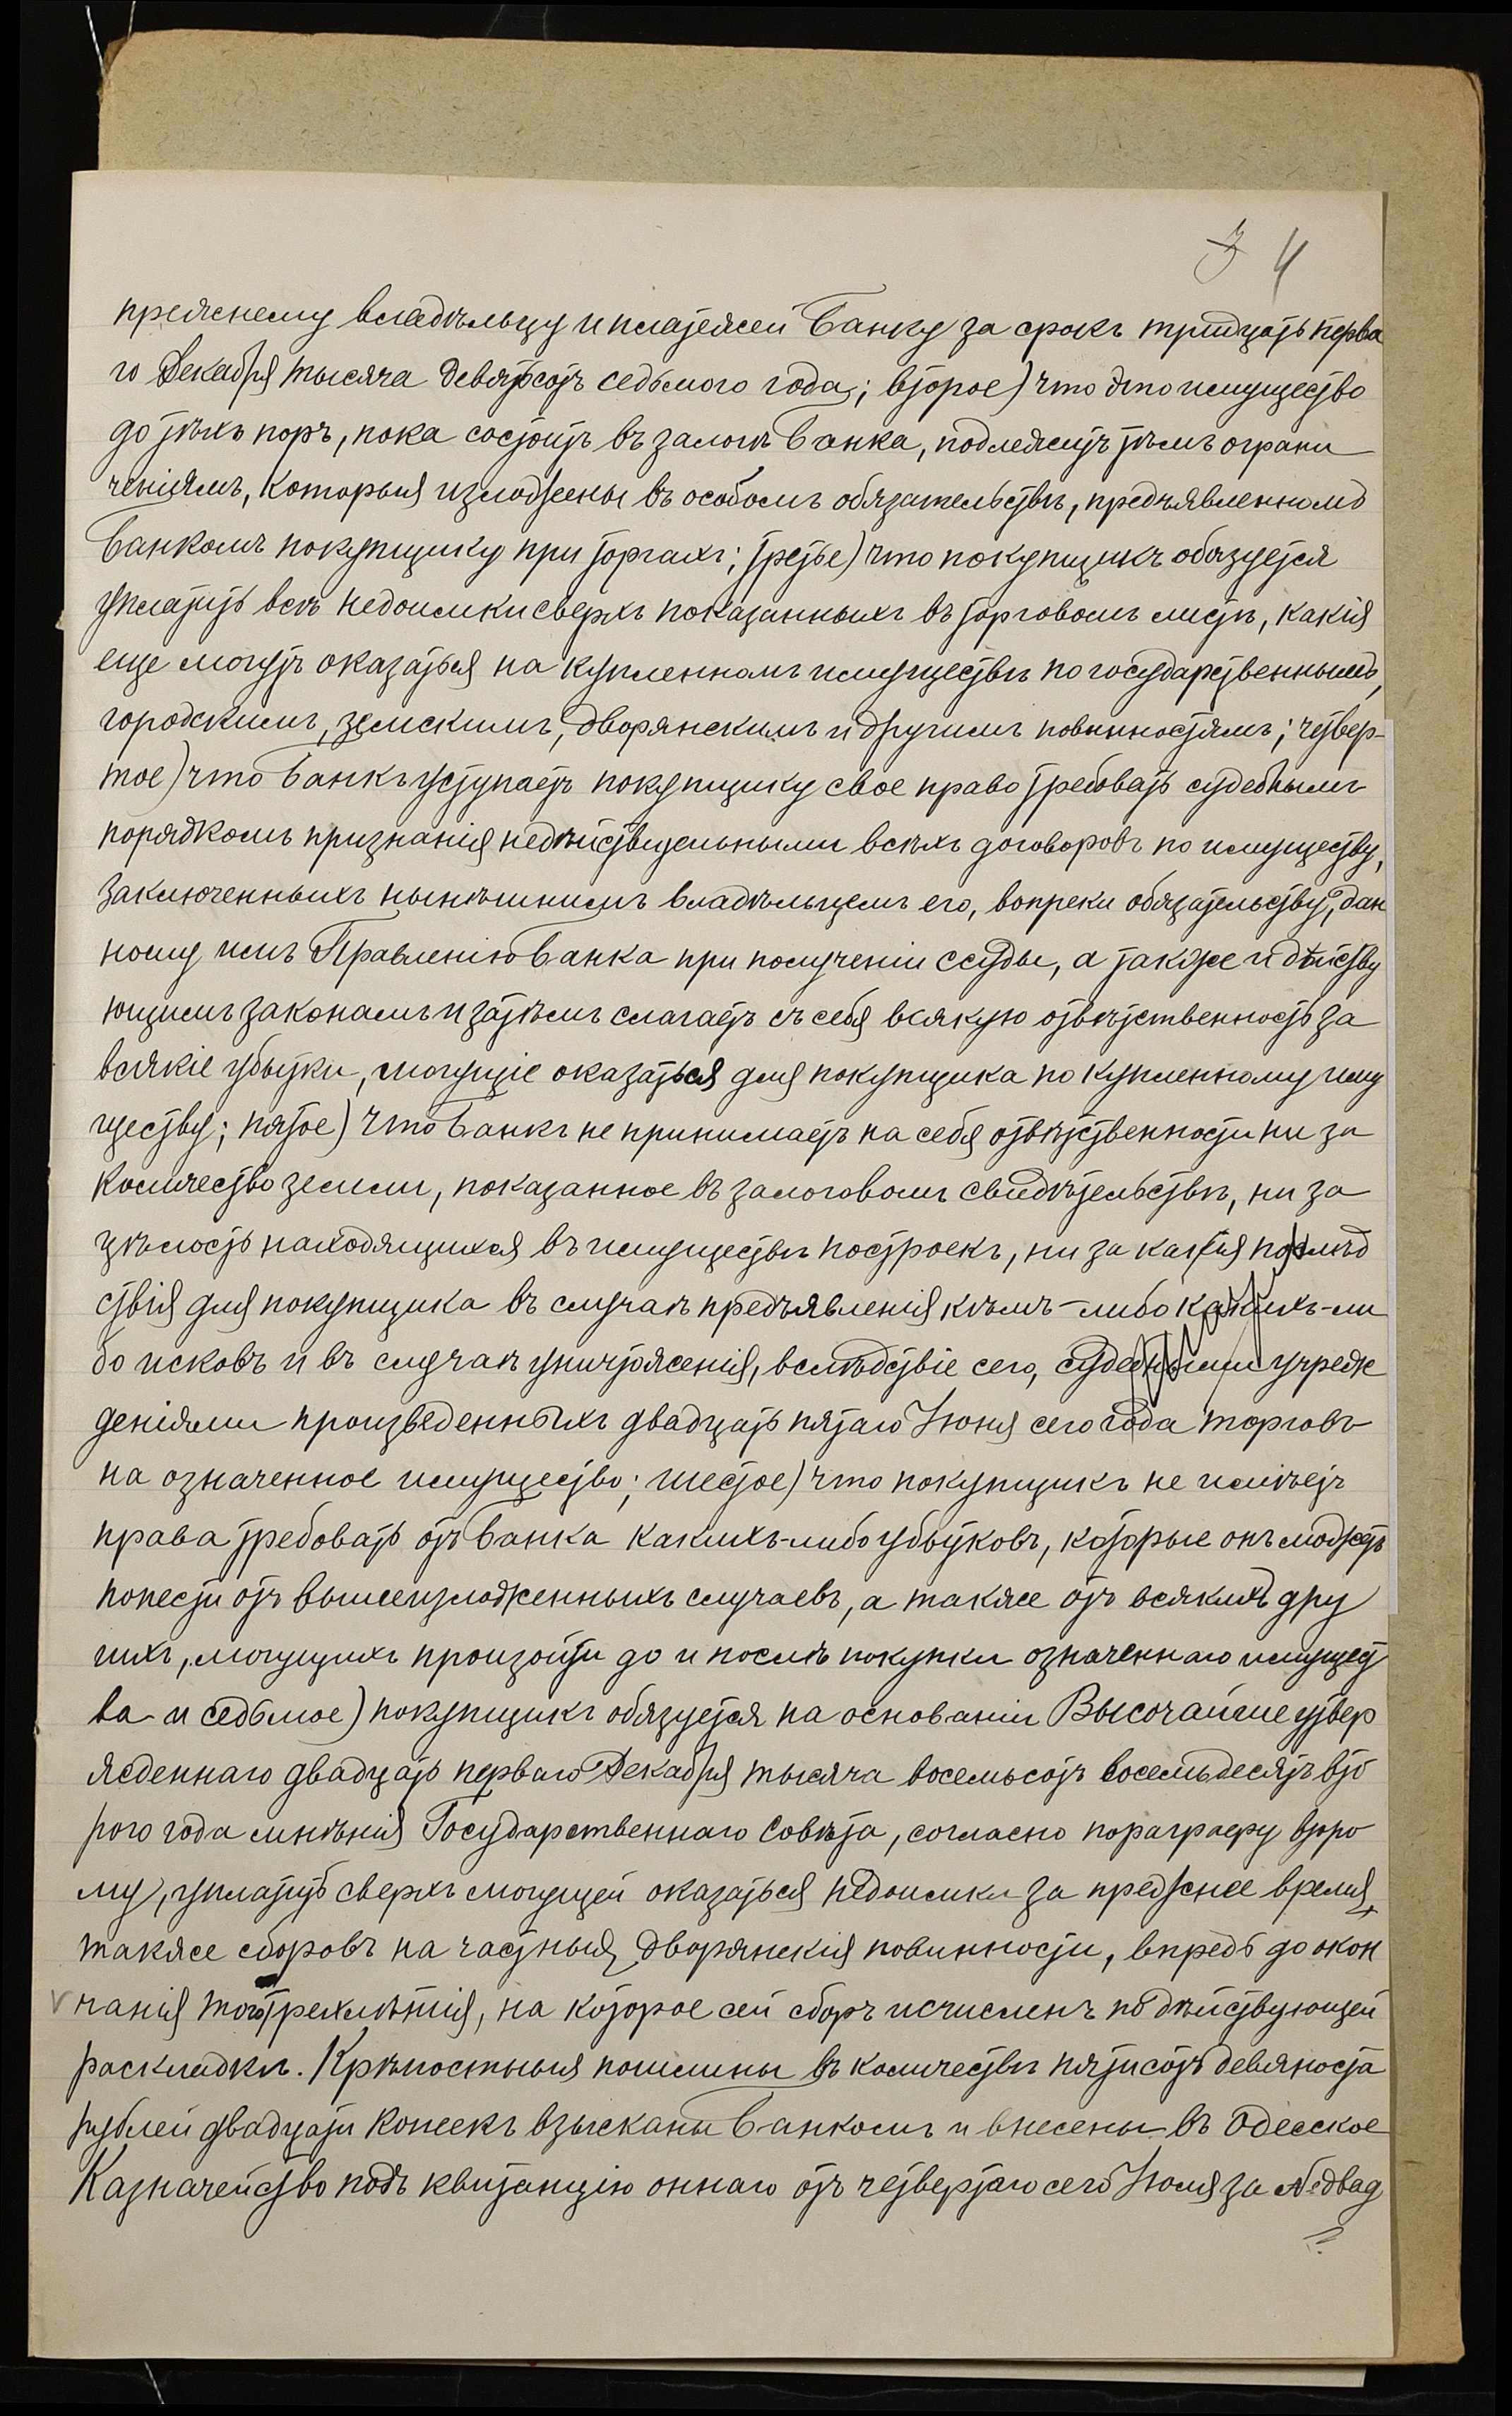 3 4
прежнему владѣльцу и платежей Банку за срокъ тридцать перва
го Декабря тысяча девятьсотъ седьмого года; второе) что это имущество
до тѣхъ поръ, пока состоитъ въ залогѣ Банка, подлежитъ тѣмъ ограни
ченіямъ, которыя изложены въ особомъ обязательствѣ, предъявленномъ
Банкомъ покупщику при торгахъ; третье) что покупщикъ обязуется
уплатить всѣ недоимки сверхъ показанныхъ въ торговомъ листѣ, какія
еще могутъ оказаться на купленномъ имуществѣ по государственнымъ,
городскимъ, земскимъ, дворянскимъ и другимъ повинностямъ; четвер-
тое) что Банкъ уступаетъ покупщику свое право требовать судебнымъ
порядкомъ признанія недѣйствительными всѣхъ договоровъ по имуществу,
заключенныхъ нынѣшнимъ владѣльцемъ его, вопреки обязательству, дан
ному имъ Правленію Банка при полученіи ссуды, а также и дѣйству
ющимъ законамъ и затѣмъ слагаетъ съ себя всякую отвѣтственность за
всякіе убытки, могущіе оказаться для покупщика по купленному иму
ществу; пятое) что Банкъ не принимаетъ на себя отвѣтственности ни за
количество земли, показанное въ залоговомъ свидѣтельствѣ, ни за
цѣлость находящихся въ имуществѣ построекъ, ни за какія послѣд
ствія для покупщика въ случаѣ предъявленія кѣмъ-либо какихъ-ли
бо исковъ и въ случаѣ уничтоженія, вслѣдствіе сего, судебными учреж
деніями произведенныхъ двадцать пятаго Іюня сего года торговъ
на означенное имущество; шестое) что покупщикъ не имѣетъ
права требовать отъ Банка какихъ-либо убытковъ, которые онъ можетъ
понести отъ вышеизложенныхъ случаевъ, а также отъ всякихъ дру
гихъ, могущихъ произойти до и послѣ покупки означеннаго имущест
ва и седьмое) покупщикъ обязуется на основаніи Высочайше утвер
жденнаго двадцать перваго Декабря тысяча восемьсотъ восемьдесятъ вто
рого года мнѣнія Государственнаго Совѣта, согласно пораграфу второ
му, уплатить сверхъ могущей оказаться недоимки за прежнее время,
также сборовъ на частныя дворянскія повинности, впредь до окон
чанія того трехлѣтія, на которое сей сборъ исчисленъ по дѣйствующей
раскладкѣ. Крѣпостныя пошлины въ количествѣ пятисотъ девяноста
рублей двадцати копеекъ взысканы Банкомъ и внесены въ Одесское
Казначейство подъ квитанцію оннаго отъ четвертаго сего Іюля за № двад